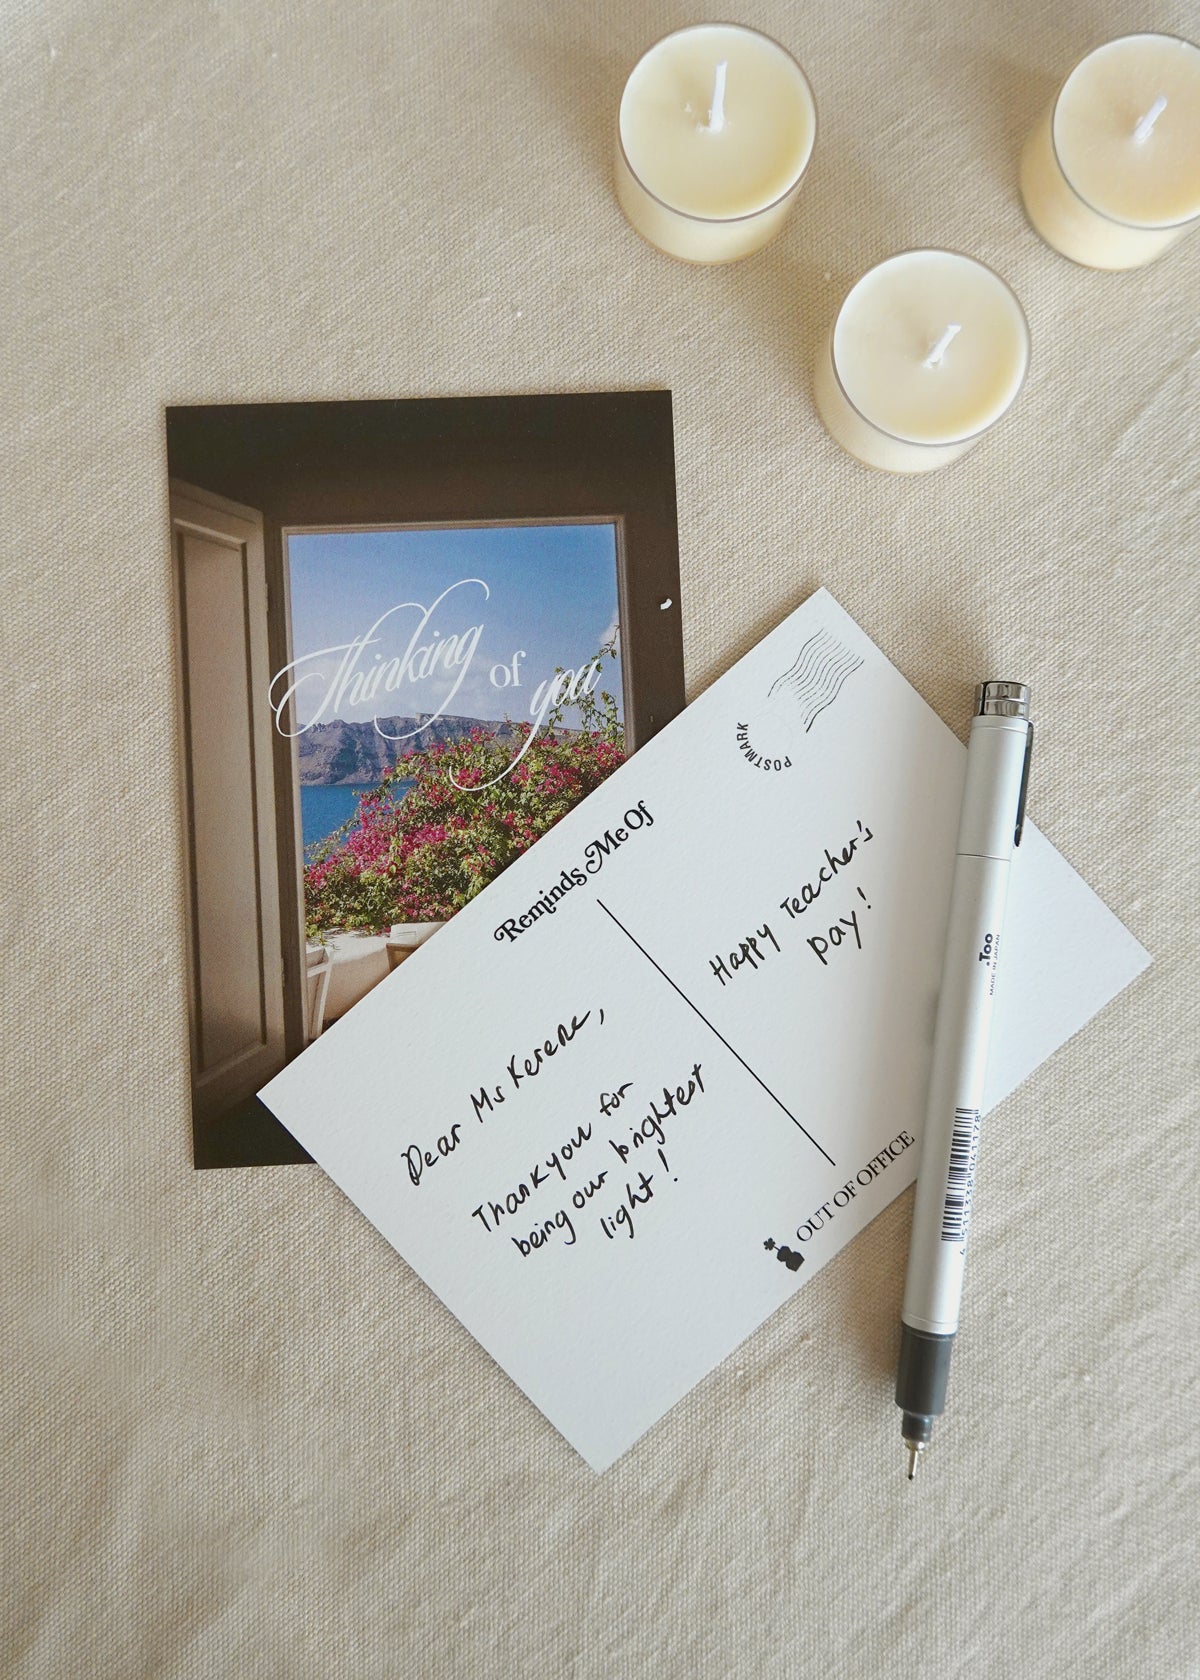 Thinking of you
POSTMARK
Reminds Me Of
Dear Ms Kerene,
Thankyou for
being our brightest
light!
Happy Teacher's
Day!
OUT OF OFFICE
.Too
MADE IN JAPAN